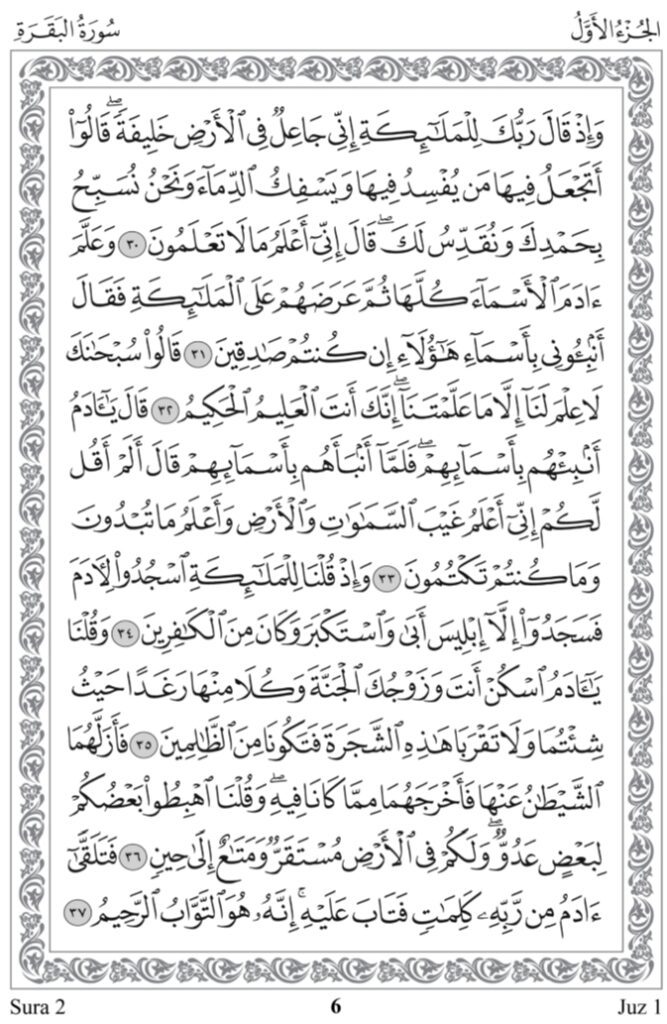 الجزء الأول
سورة البقرة
وَإِذْ قَالَ رَبُّكَ لِلْمَلَٰٓئِكَةِ إِنِّى جَاعِلٌ فِى ٱلْأَرْضِ خَلِيفَةً ۖ قَالُوٓا۟
أَتَجْعَلُ فِيهَا مَن يُفْسِدُ فِيهَا وَيَسْفِكُ ٱلدِّمَآءَ وَنَحْنُ نُسَبِّحُ
بِحَمْدِكَ وَنُقَدِّسُ لَكَ ۖ قَالَ إِنِّىٓ أَعْلَمُ مَا لَا تَعْلَمُونَ ٣٠ وَعَلَّمَ
ءَادَمَ ٱلْأَسْمَآءَ كُلَّهَا ثُمَّ عَرَضَهُمْ عَلَى ٱلْمَلَٰٓئِكَةِ فَقَالَ
أَنۢبِـُٔونِى بِأَسْمَآءِ هَٰٓؤُلَآءِ إِن كُنتُمْ صَٰدِقِينَ ٣١ قَالُوا۟ سُبْحَٰنَكَ
لَا عِلْمَ لَنَآ إِلَّا مَا عَلَّمْتَنَآ ۖ إِنَّكَ أَنتَ ٱلْعَلِيمُ ٱلْحَكِيمُ ٣٢ قَالَ يَٰٓـَٔادَمُ
أَنۢبِئْهُم بِأَسْمَآئِهِمْ ۖ فَلَمَّآ أَنۢبَأَهُم بِأَسْمَآئِهِمْ قَالَ أَلَمْ أَقُل
لَّكُمْ إِنِّىٓ أَعْلَمُ غَيْبَ ٱلسَّمَٰوَٰتِ وَٱلْأَرْضِ وَأَعْلَمُ مَا تُبْدُونَ
وَمَا كُنتُمْ تَكْتُمُونَ ٣٣ وَإِذْ قُلْنَا لِلْمَلَٰٓئِكَةِ ٱسْجُدُوا۟ لِـَٔادَمَ
فَسَجَدُوٓا۟ إِلَّآ إِبْلِيسَ أَبَىٰ وَٱسْتَكْبَرَ وَكَانَ مِنَ ٱلْكَٰفِرِينَ ٣٤ وَقُلْنَا
يَٰٓـَٔادَمُ ٱسْكُنْ أَنتَ وَزَوْجُكَ ٱلْجَنَّةَ وَكُلَا مِنْهَا رَغَدًا حَيْثُ
شِئْتُمَا وَلَا تَقْرَبَا هَٰذِهِ ٱلشَّجَرَةَ فَتَكُونَا مِنَ ٱلظَّٰلِمِينَ ٣٥ فَأَزَلَّهُمَا
ٱلشَّيْطَٰنُ عَنْهَا فَأَخْرَجَهُمَا مِمَّا كَانَا فِيهِ ۖ وَقُلْنَا ٱهْبِطُوا۟ بَعْضُكُمْ
لِبَعْضٍ عَدُوٌّ ۖ وَلَكُمْ فِى ٱلْأَرْضِ مُسْتَقَرٌّ وَمَتَٰعٌ إِلَىٰ حِينٍ ٣٦ فَتَلَقَّىٰٓ
ءَادَمُ مِن رَّبِّهِۦ كَلِمَٰتٍ فَتَابَ عَلَيْهِ ۚ إِنَّهُۥ هُوَ ٱلتَّوَّابُ ٱلرَّحِيمُ ٣٧
Sura 2
6
Juz 1